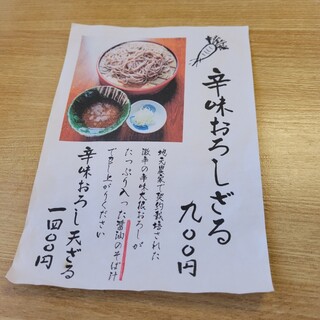 辛味おろしざる
九〇〇円
地元農家で契約栽培された
激辛の辛味大根おろしが
たっぷり入った醤油のそば汁
で召し上がりください
辛味おろし天ざる
一四〇〇円